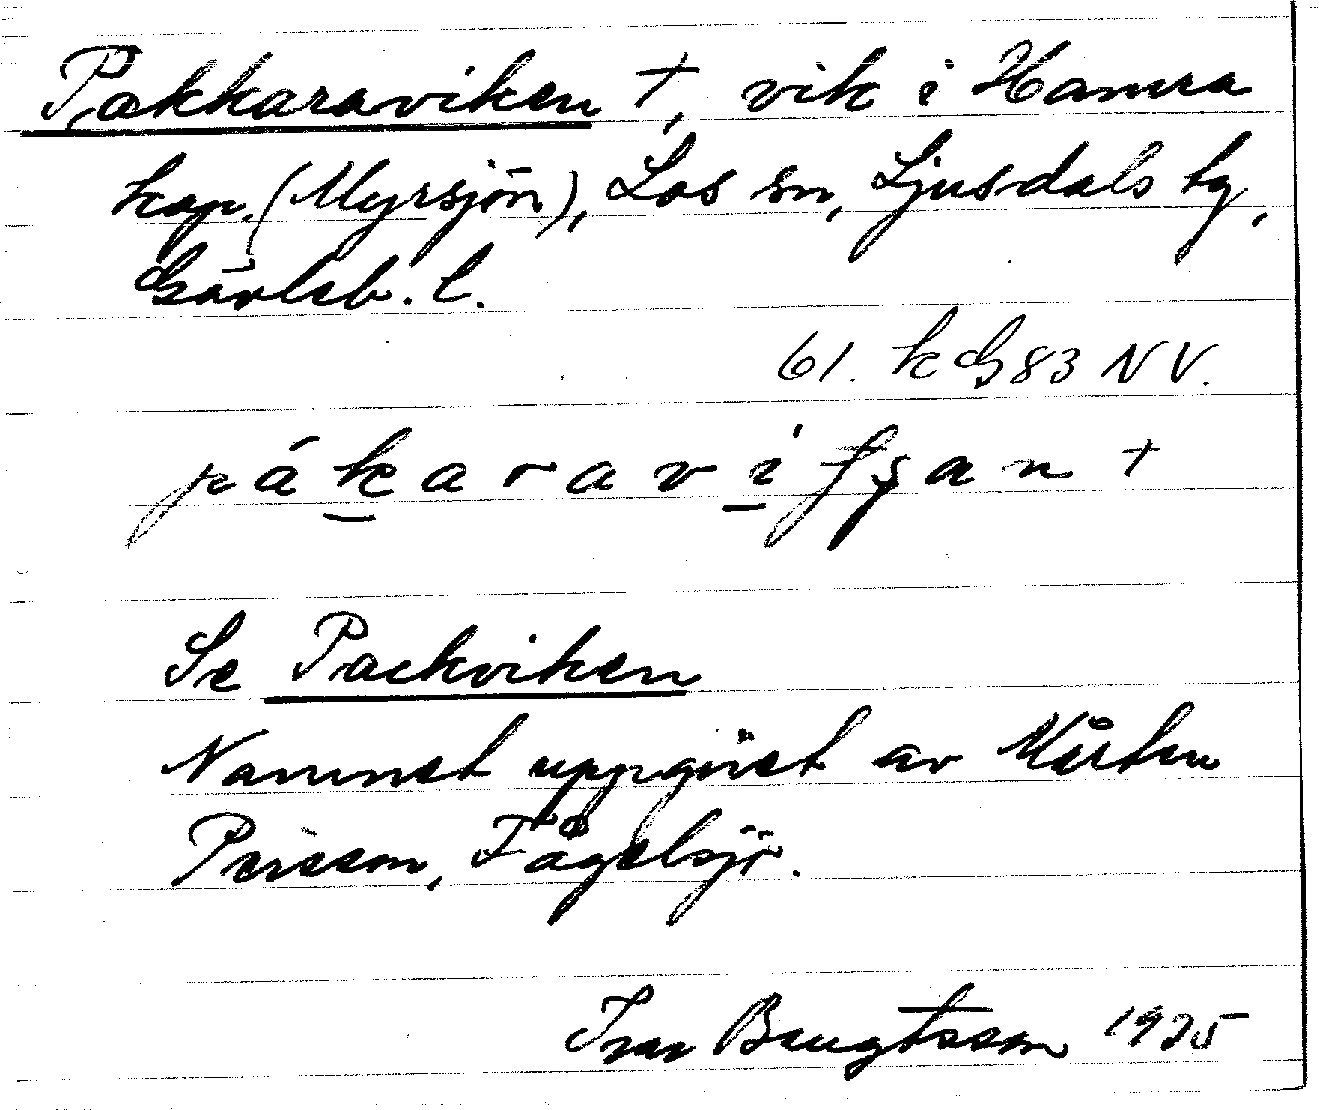 Pakkaraviken †, vik i Hamra
kap. (Myrsjön), Los sn, Ljusdals tg,
Gävleb. l.
61. kG 83 NV.
pákaravifșan †
Se Packviken
Namnet uppgivet av Mårten
Persson, Fågelsjö.
Ivar Bengtsson 1925